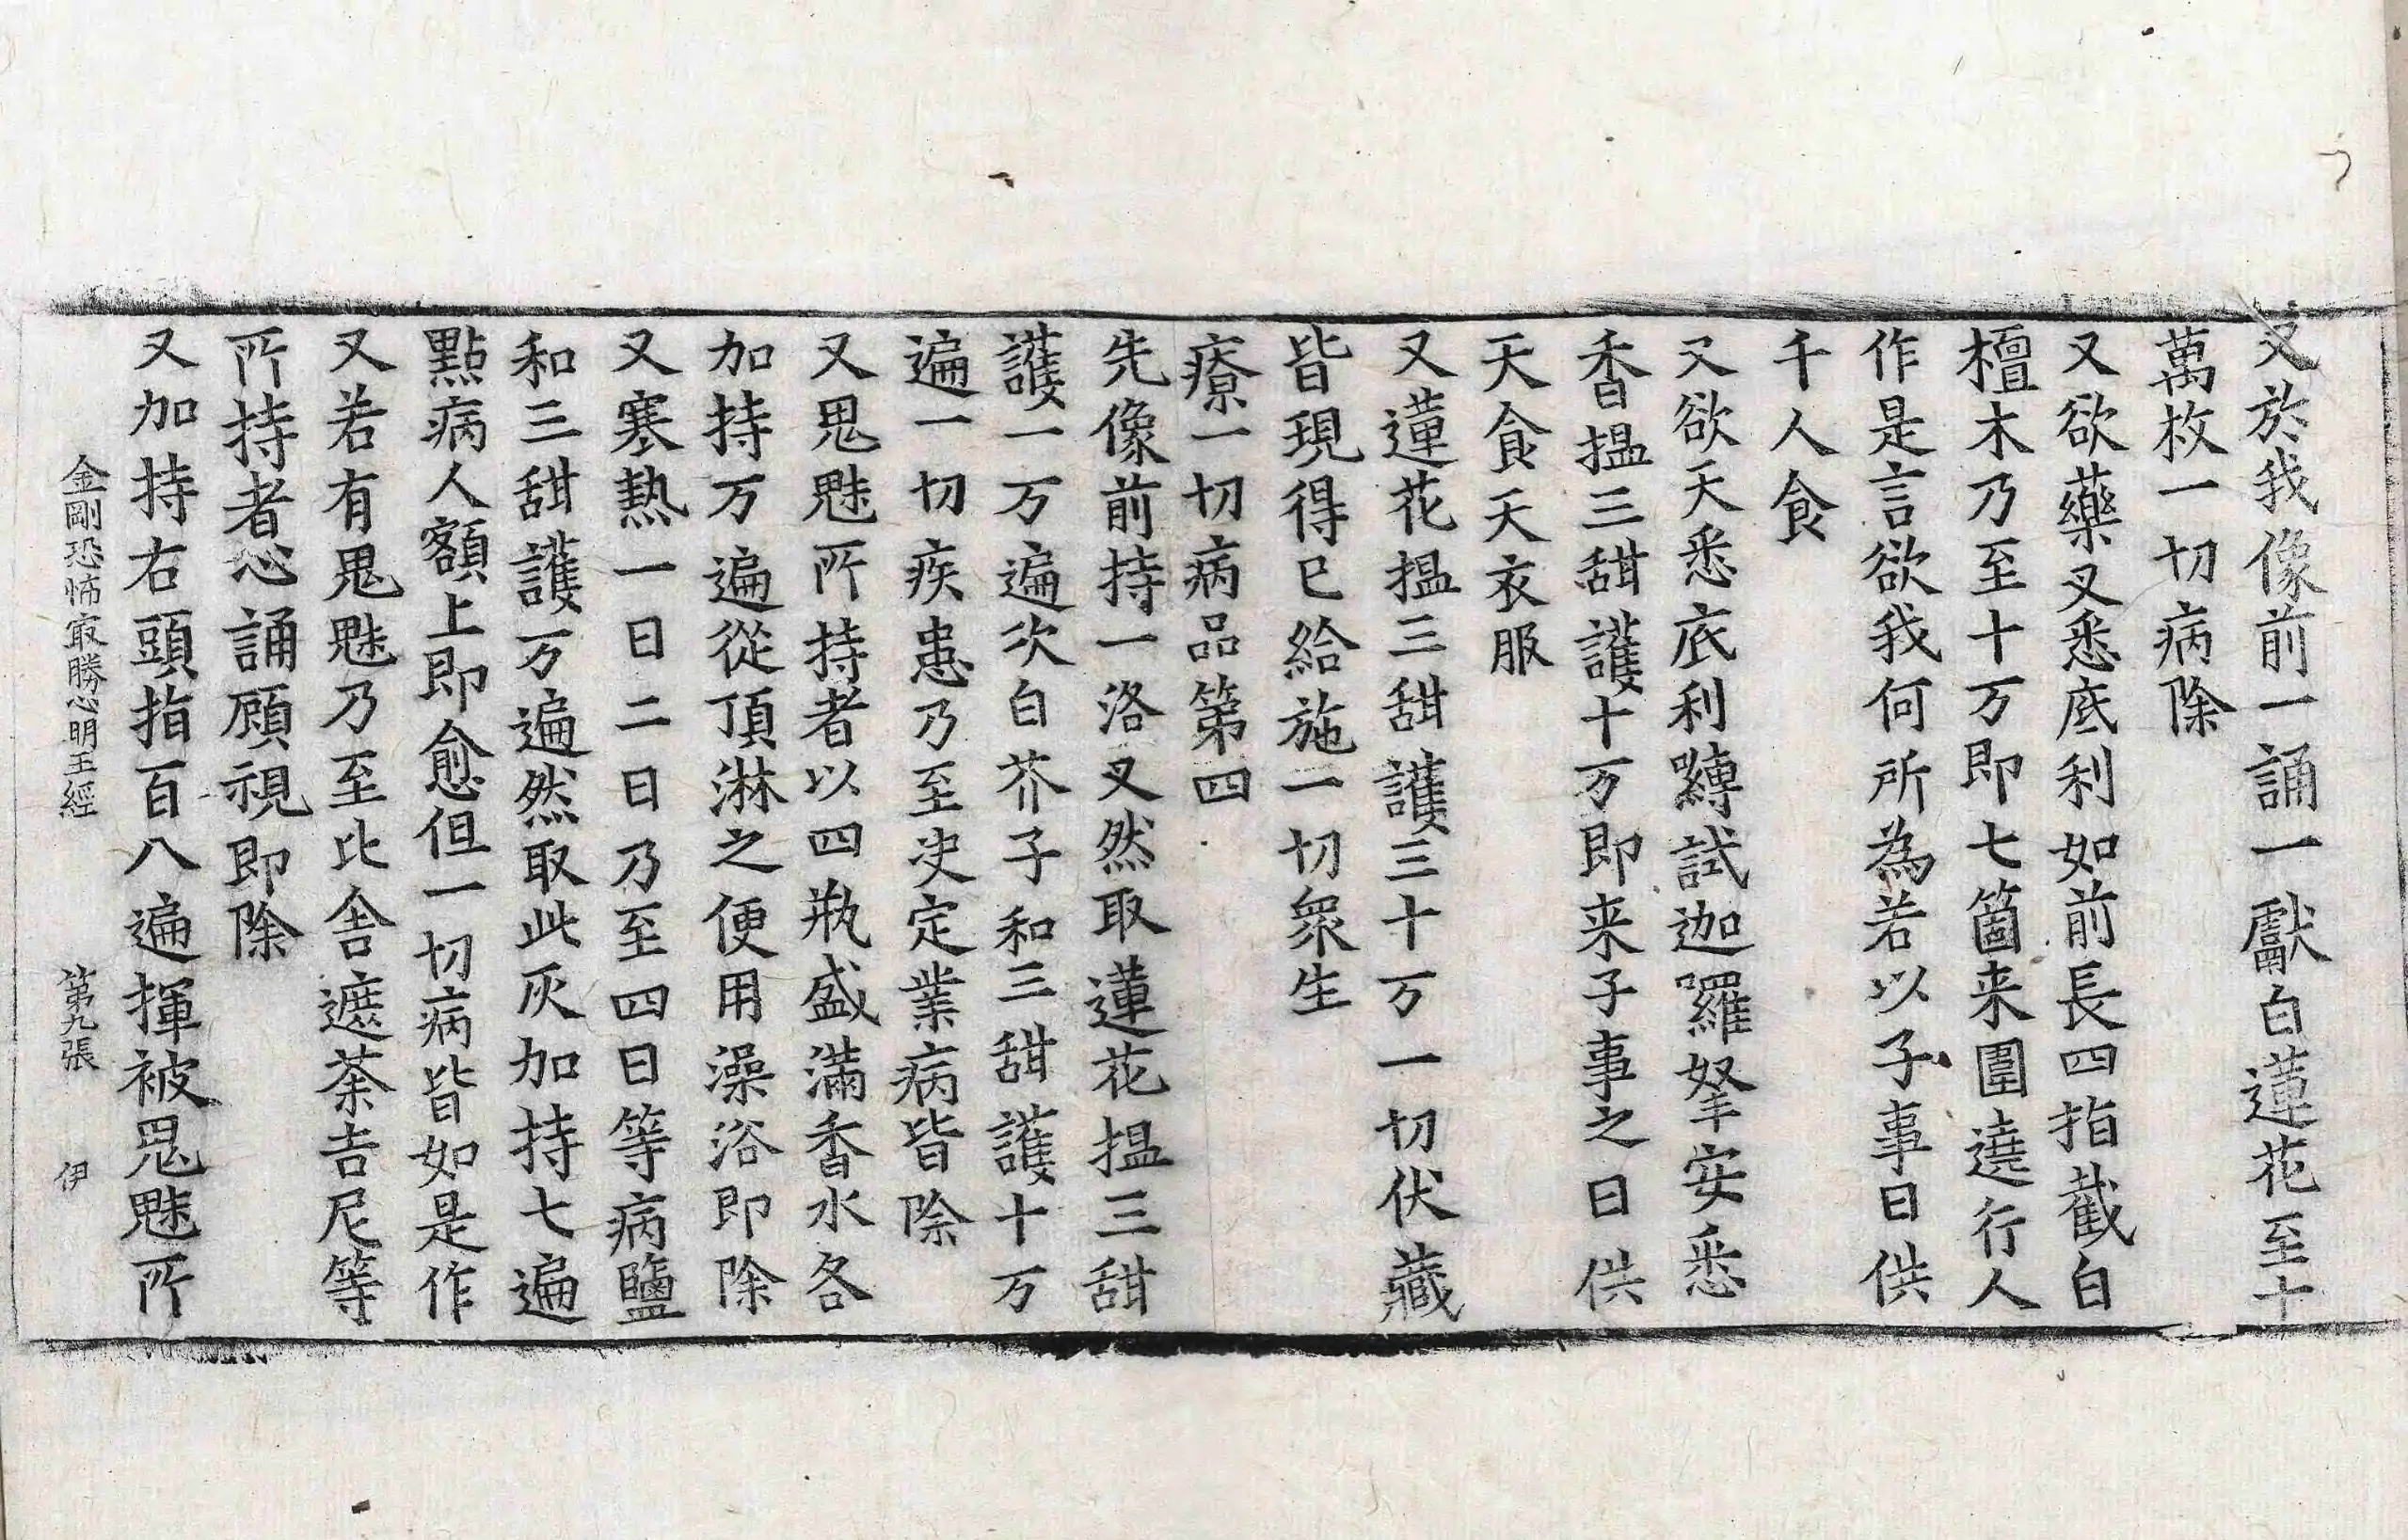 又於我像前一誦一獻白蓮花至十
萬枚一切病除
又欲藥叉悉底利如前長四指截白
檀木乃至十万即七箇来圍遶行人
作是言欲我何所為若以子事日供
千人食
又欲天悉底利嚩試迦羅拏安悉
香揾三甜護十万即来子事之日供
天食天衣服
又蓮花揾三甜護三十万一切伏藏
皆現得已給施一切衆生
療一切病品第四
先像前持一洛叉然取蓮花揾三甜
護一万遍次白芥子和三甜護十万
遍一切疾患乃至决定業病皆除
又鬼魅所持者以四瓶盛滿香水各
加持万遍從頂淋之便用澡浴即除
又寒熱一日二日乃至四日等病鹽
和三甜護万遍然取此灰加持七遍
點病人額上即愈但一切病皆如是作
又若有鬼魅乃至比舍遮荼吉尼等
所持者心誦顧視即除
又加持右頭指百八遍揮被鬼魅所
金剛恐怖冣勝心明王經 第九張 伊